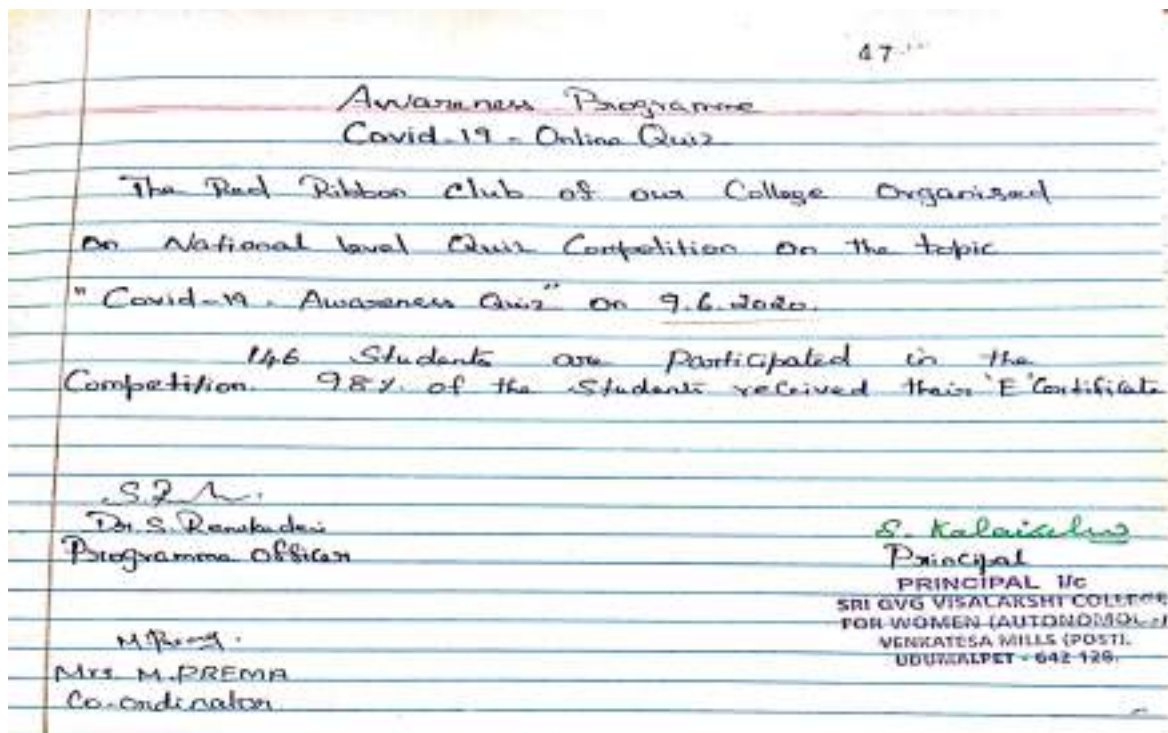 47
Awareness Programme
Covid-19 - Online Quiz
The Red Ribbon Club of our College Organised
on National level Quiz Competition on the topic
"Covid-19 - Awareness Quiz" on 9.6.2020.
146 Students are Participated in the
Competition. 98% of the Students received their 'E' Certificate
Dr. S. Renukadevi
Programme Officer
S. Kalaiselvi
Principal
PRINCIPAL I/c
SRI GVG VISALAKSHI COLLEGE
FOR WOMEN (AUTONOMOUS)
VENKATESA MILLS (POST),
UDUMALPET - 642 128.
Mrs. M. PREMA
Co-ordinator